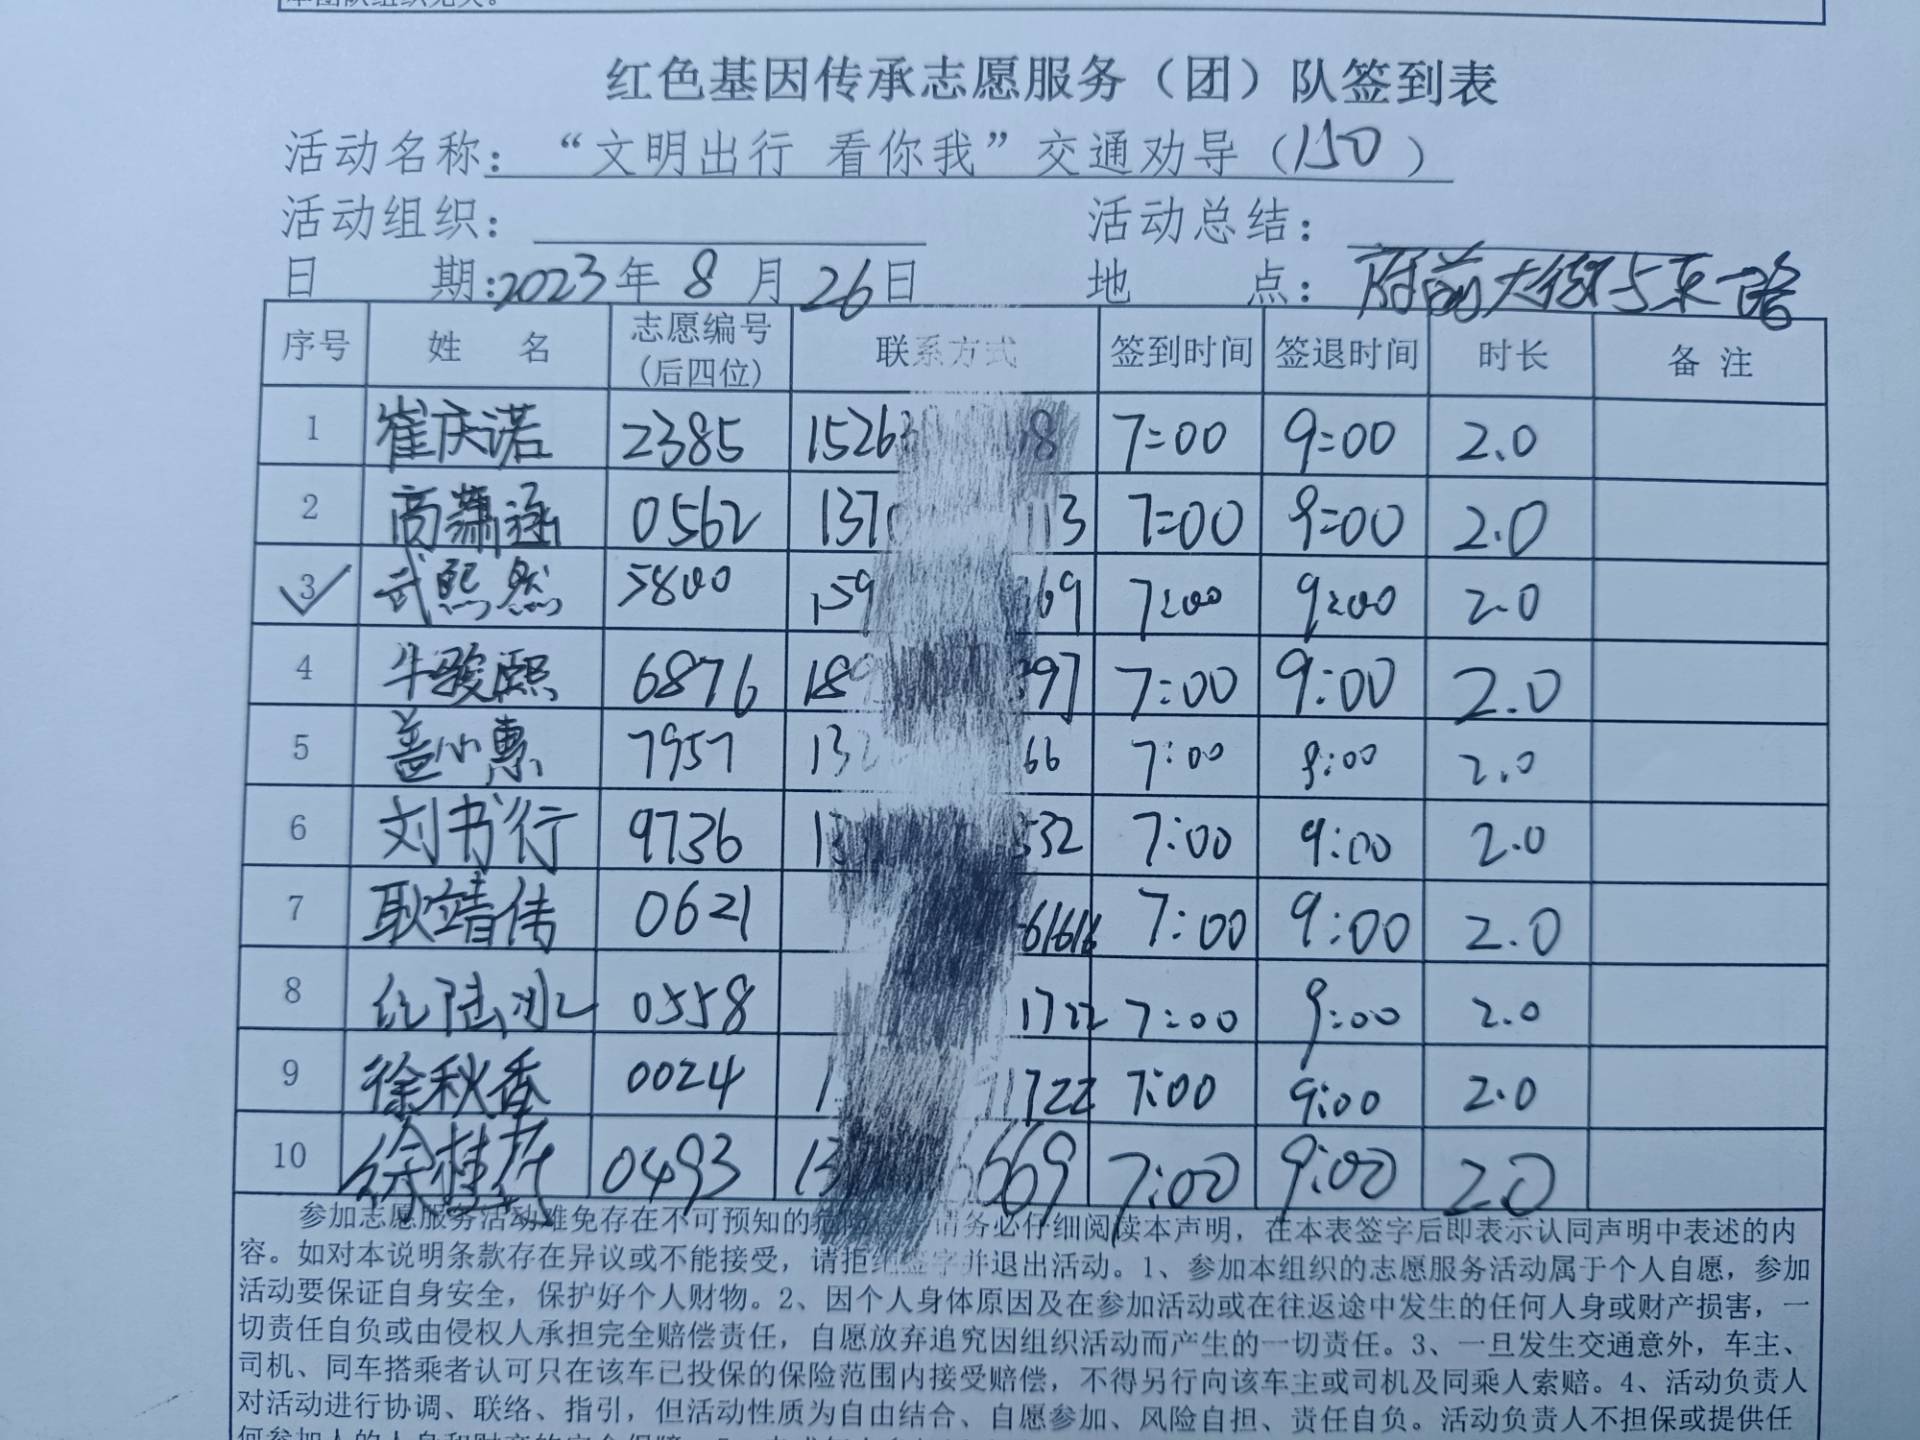 红色基因传承志愿服务（团）队签到表
活动名称：“文明出行 看你我”交通劝导（150）
活动组织： 活动总结：
日 期:2023年8月26日 地 点：府前大街与东一路
序号 姓 名 志愿编号(后四位) 联系方式 签到时间 签退时间 时长 备 注
1 崔庆诺 2385 15263 8 7:00 9:00 2.0
2 商潇涵 0562 137 113 7:00 9:00 2.0
3 武熙然 5800 159 69 7:00 9:00 2.0
4 牛骏熙 6876 189 397 7:00 9:00 2.0
5 盖小惠 7957 132 66 7:00 9:00 2.0
6 刘书行 9736 13 532 7:00 9:00 2.0
7 耿靖伟 0621 61616 7:00 9:00 2.0
8 陆冰 0558 1722 7:00 9:00 2.0
9 徐秋香 0024 1 1722 7:00 9:00 2.0
10 徐桂 0493 13 6669 7:00 9:00 2.0
参加志愿服务活动难免存在不可预知的 请务必仔细阅读本声明，在本表签字后即表示认同声明中表述的内
容。如对本说明条款存在异议或不能接受，请拒绝签字并退出活动。1、参加本组织的志愿服务活动属于个人自愿，参加
活动要保证自身安全，保护好个人财物。2、因个人身体原因及在参加活动或在往返途中发生的任何人身或财产损害，一
切责任自负或由侵权人承担完全赔偿责任，自愿放弃追究因组织活动而产生的一切责任。3、一旦发生交通意外，车主、
司机、同车搭乘者认可只在该车已投保的保险范围内接受赔偿，不得另行向该车主或司机及同乘人索赔。4、活动负责人
对活动进行协调、联络、指引，但活动性质为自由结合、自愿参加、风险自担、责任自负。活动负责人不担保或提供任